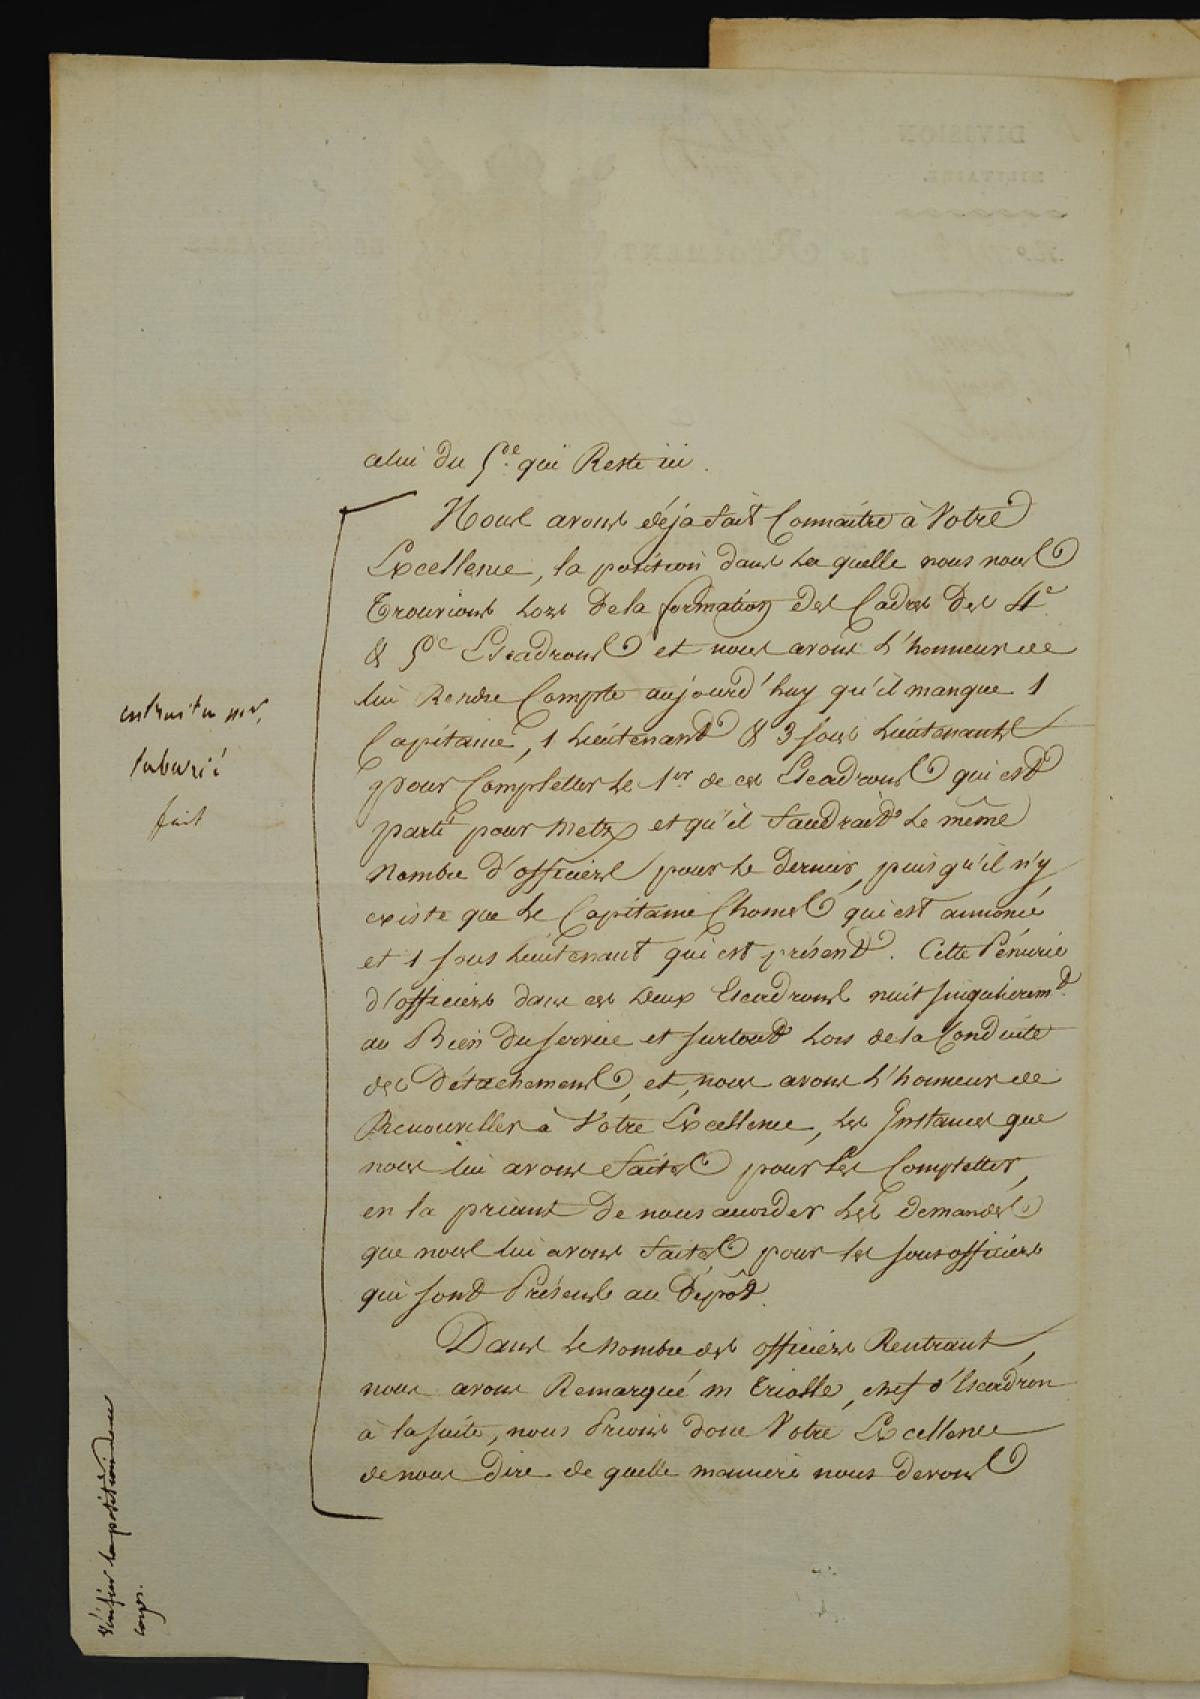 celui du 5e. qui Reste ici.
Nous avons déja fait Connaitre à Votre
Excellence, la position dans la quelle nous nous
Trouvions lors De la formation des Cadres Des 4e
& 5e Escadrons et nous avons l'honneur de
lui Rendre Compte aujourd'huy qu'il manque 1
Capitaine, 1 Lieutenant & 3 sous Lieutenants
pour Completter le 1er de ces Escadrons qui est
parti pour Metz et qu'il faudrait le même
Nombre d'officiers pour le Dernier, puis qu'il n'y
existe que le Capitaine Chomel qui est annoncé
et 1 sous Lieutenant qui est présent. Cette Pénurie
d'officiers dans ces deux Escadrons nuit singulièremt.
au Bien Du service et surtout lors de la Conduite
des Détachements, et, nous avons l'honneur de
Renouveller à Votre Excellence, les Instances que
nous lui avons faites pour les Completter,
en la priant De nous accorder les demandes
que nous lui avons faites pour les sous officiers
qui sont Présents au Dépôt.
Dans le Nombre des officiers Rentrant,
nous avons Remarqué M Triolle, chef d'Escadron
à la suite, nous Prions donc Votre Excellence
de nous Dire de quelle maniere nous devons
fait
Vérifier la position de ce
corps.
DIVISION
MILITAIRE
REGIMENT